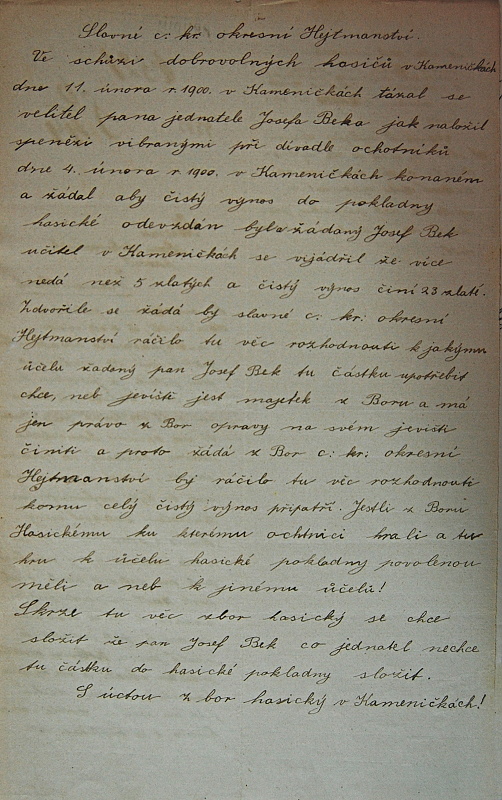 Slavné c: kr: okresní Hejtmanství.
Ve schůzi dobrovolných hasičů v Kameničkách
dne 11. února r. 1900. v Kameničkách tázal se
velitel pana jednatele Josefa Beka jak naložil
s penězi vibranými při divadle ochotníků
dne 4. února r 1900. v Kameničkách konaném
a žádal aby čistý výnos do pokladny
hasické odevzdán byl a žádaný Josef Bek
učitel v Kameničkách se vijádřil že více
nedá než 5 zlatých a čistý výnos činí 23 zlatí.
Zdvořile se žádá by slavné c: kr: okresní
Hejtmanství ráčilo tu věc rozhodnouti k jakýmu
účelu žadaný pan Josef Bek tu částku upotřebit
chce, neb jeviští jest majetek z Boru a má
jen právo z Bor opravy na svém jevišti
činiti a proto žádá z Bor c: kr: okresní
Hejtmanství by ráčilo tu věc rozhodnouti
komu celý čistý výnos připatří. Jestli z Boru
Hasickému ku kterému ochtníci hráli a tu
hru k účelu hasické pokladny povolenou
měli a neb k jinému účelů!
Skrze tu věc zbor hasický se chce
složit že pan Josef Bek co jednatel nechce
tu částku do hasické pokladny složit.
S úctou z bor hasický v Kameničkách!